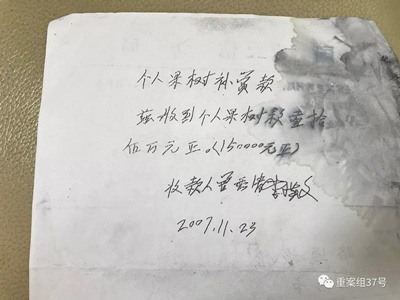 个人果树补赏款
兹收到个人果树款壹拾
伍万元正(150000元正)
收款人
2007.11.23
重案组37号